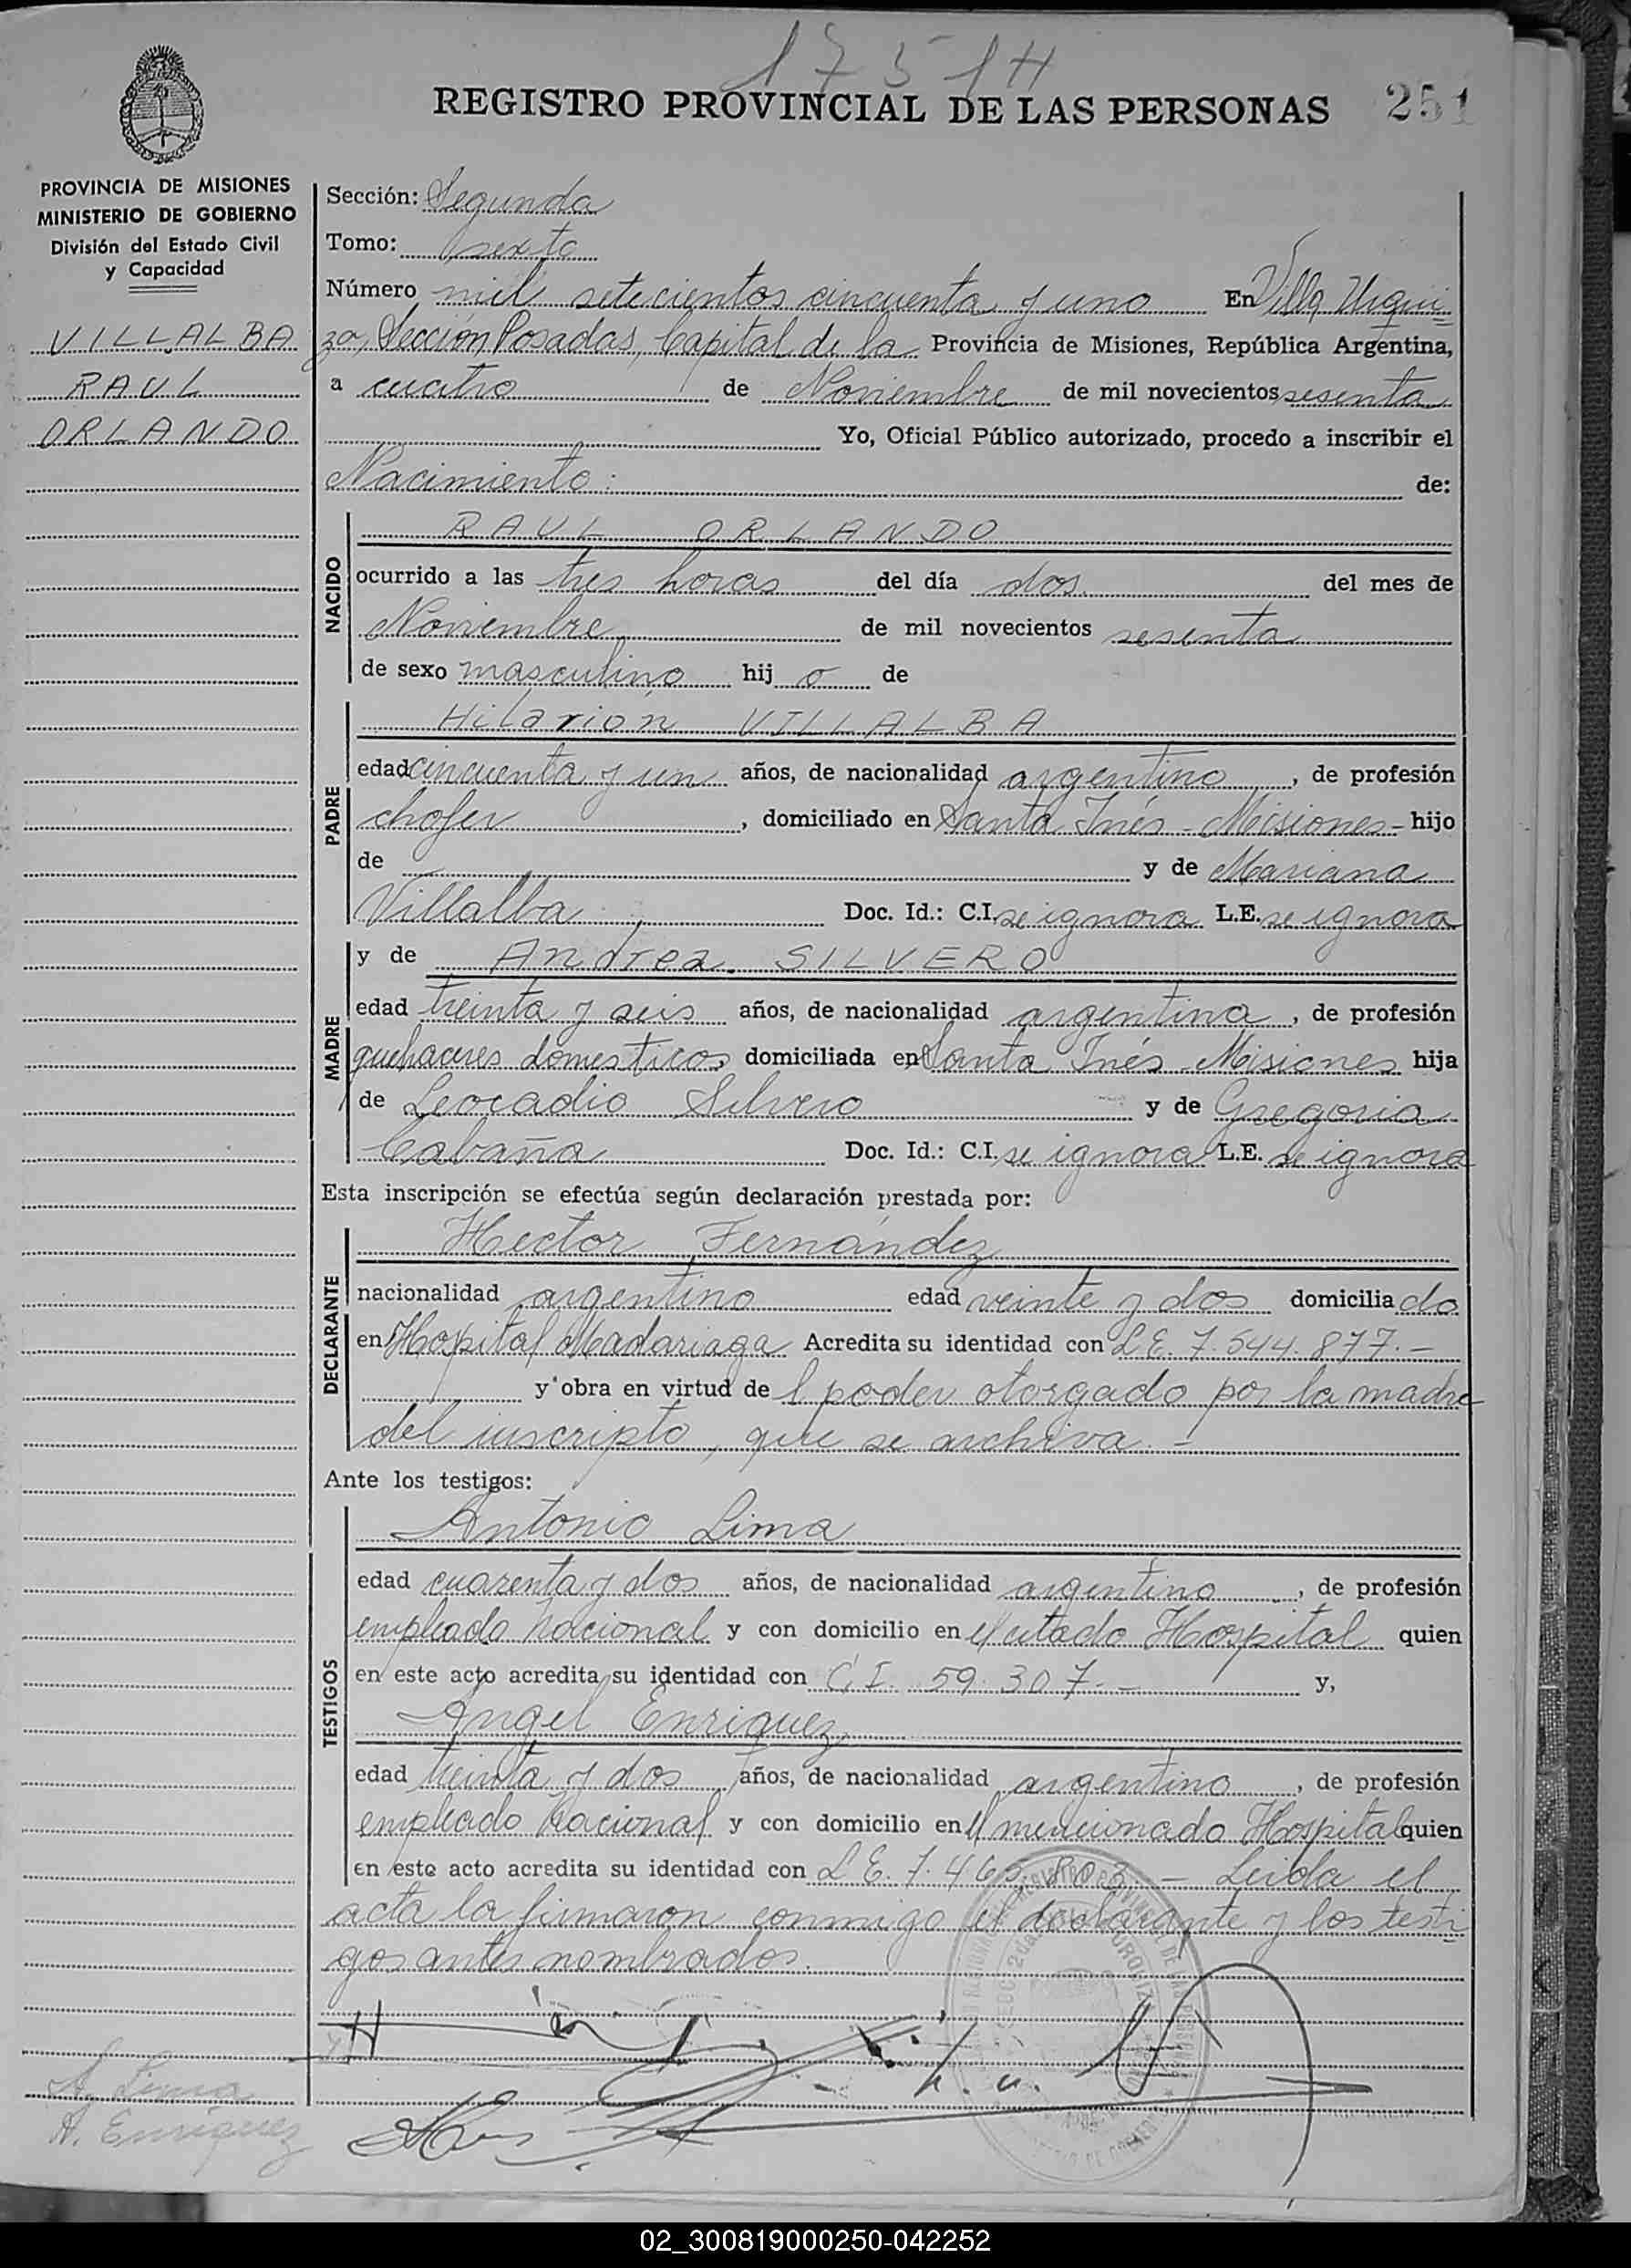 1751 H
REGISTRO PROVINCIAL DE LAS PERSONAS 251
PROVINCIA DE MISIONES
MINISTERIO DE GOBIERNO
División del Estado Civil
y Capacidad
VILLALBA
RAUL
ORLANDO
Sección: Segunda
Tomo: sexto
Número mil setecientos cincuenta y uno En Villa Urqui
za, Sección Posadas, Capital de la Provincia de Misiones, República Argentina,
a cuatro de Noviembre de mil novecientos sesenta
Yo, Oficial Público autorizado, procedo a inscribir el
Nacimiento: de:
NACIDO
RAUL ORLANDO
ocurrido a las tres horas del día dos del mes de
Noviembre de mil novecientos sesenta
de sexo masculino hij o de
PADRE
Hilarión VILLALBA
edad cincuenta y un años, de nacionalidad argentino, de profesión
chofer, domiciliado en Santa Inés - Misiones - hijo
de y de Mariana
Villalba Doc. Id.: C.I. se ignora L.E. se ignora
MADRE
y de Andrea SILVERO
edad treinta y seis años, de nacionalidad argentina, de profesión
quehaceres domesticos, domiciliada en Santa Inés - Misiones hija
de Leocadio Silvero y de Gregoria
Cabaña Doc. Id.: C.I. se ignora L.E. se ignora
Esta inscripción se efectúa según declaración prestada por:
DECLARANTE
Hector Fernández
nacionalidad argentino edad veinte y dos domicilia do
en Hospital Madariaga Acredita su identidad con L.E. 7.544.877.-
y obra en virtud de l poder otorgado por la madre
del inscripto, que se archiva.-
Ante los testigos:
TESTIGOS
Antonio Lima
edad cuarenta y dos años, de nacionalidad argentino, de profesión
empleado Nacional y con domicilio en el citado Hospital quien
en este acto acredita su identidad con C.I. 59.307.- y,
Angel Enriquez
edad treinta y dos años, de nacionalidad argentino, de profesión
empleado Nacional y con domicilio en el mencionado Hospital quien
en este acto acredita su identidad con L.E. 7.46 803.- Leida el
acta la firmaron conmigo el declarante y los testi
gos antes nombrados.
A. Lima
A. Enriquez
02_300819000250-042252